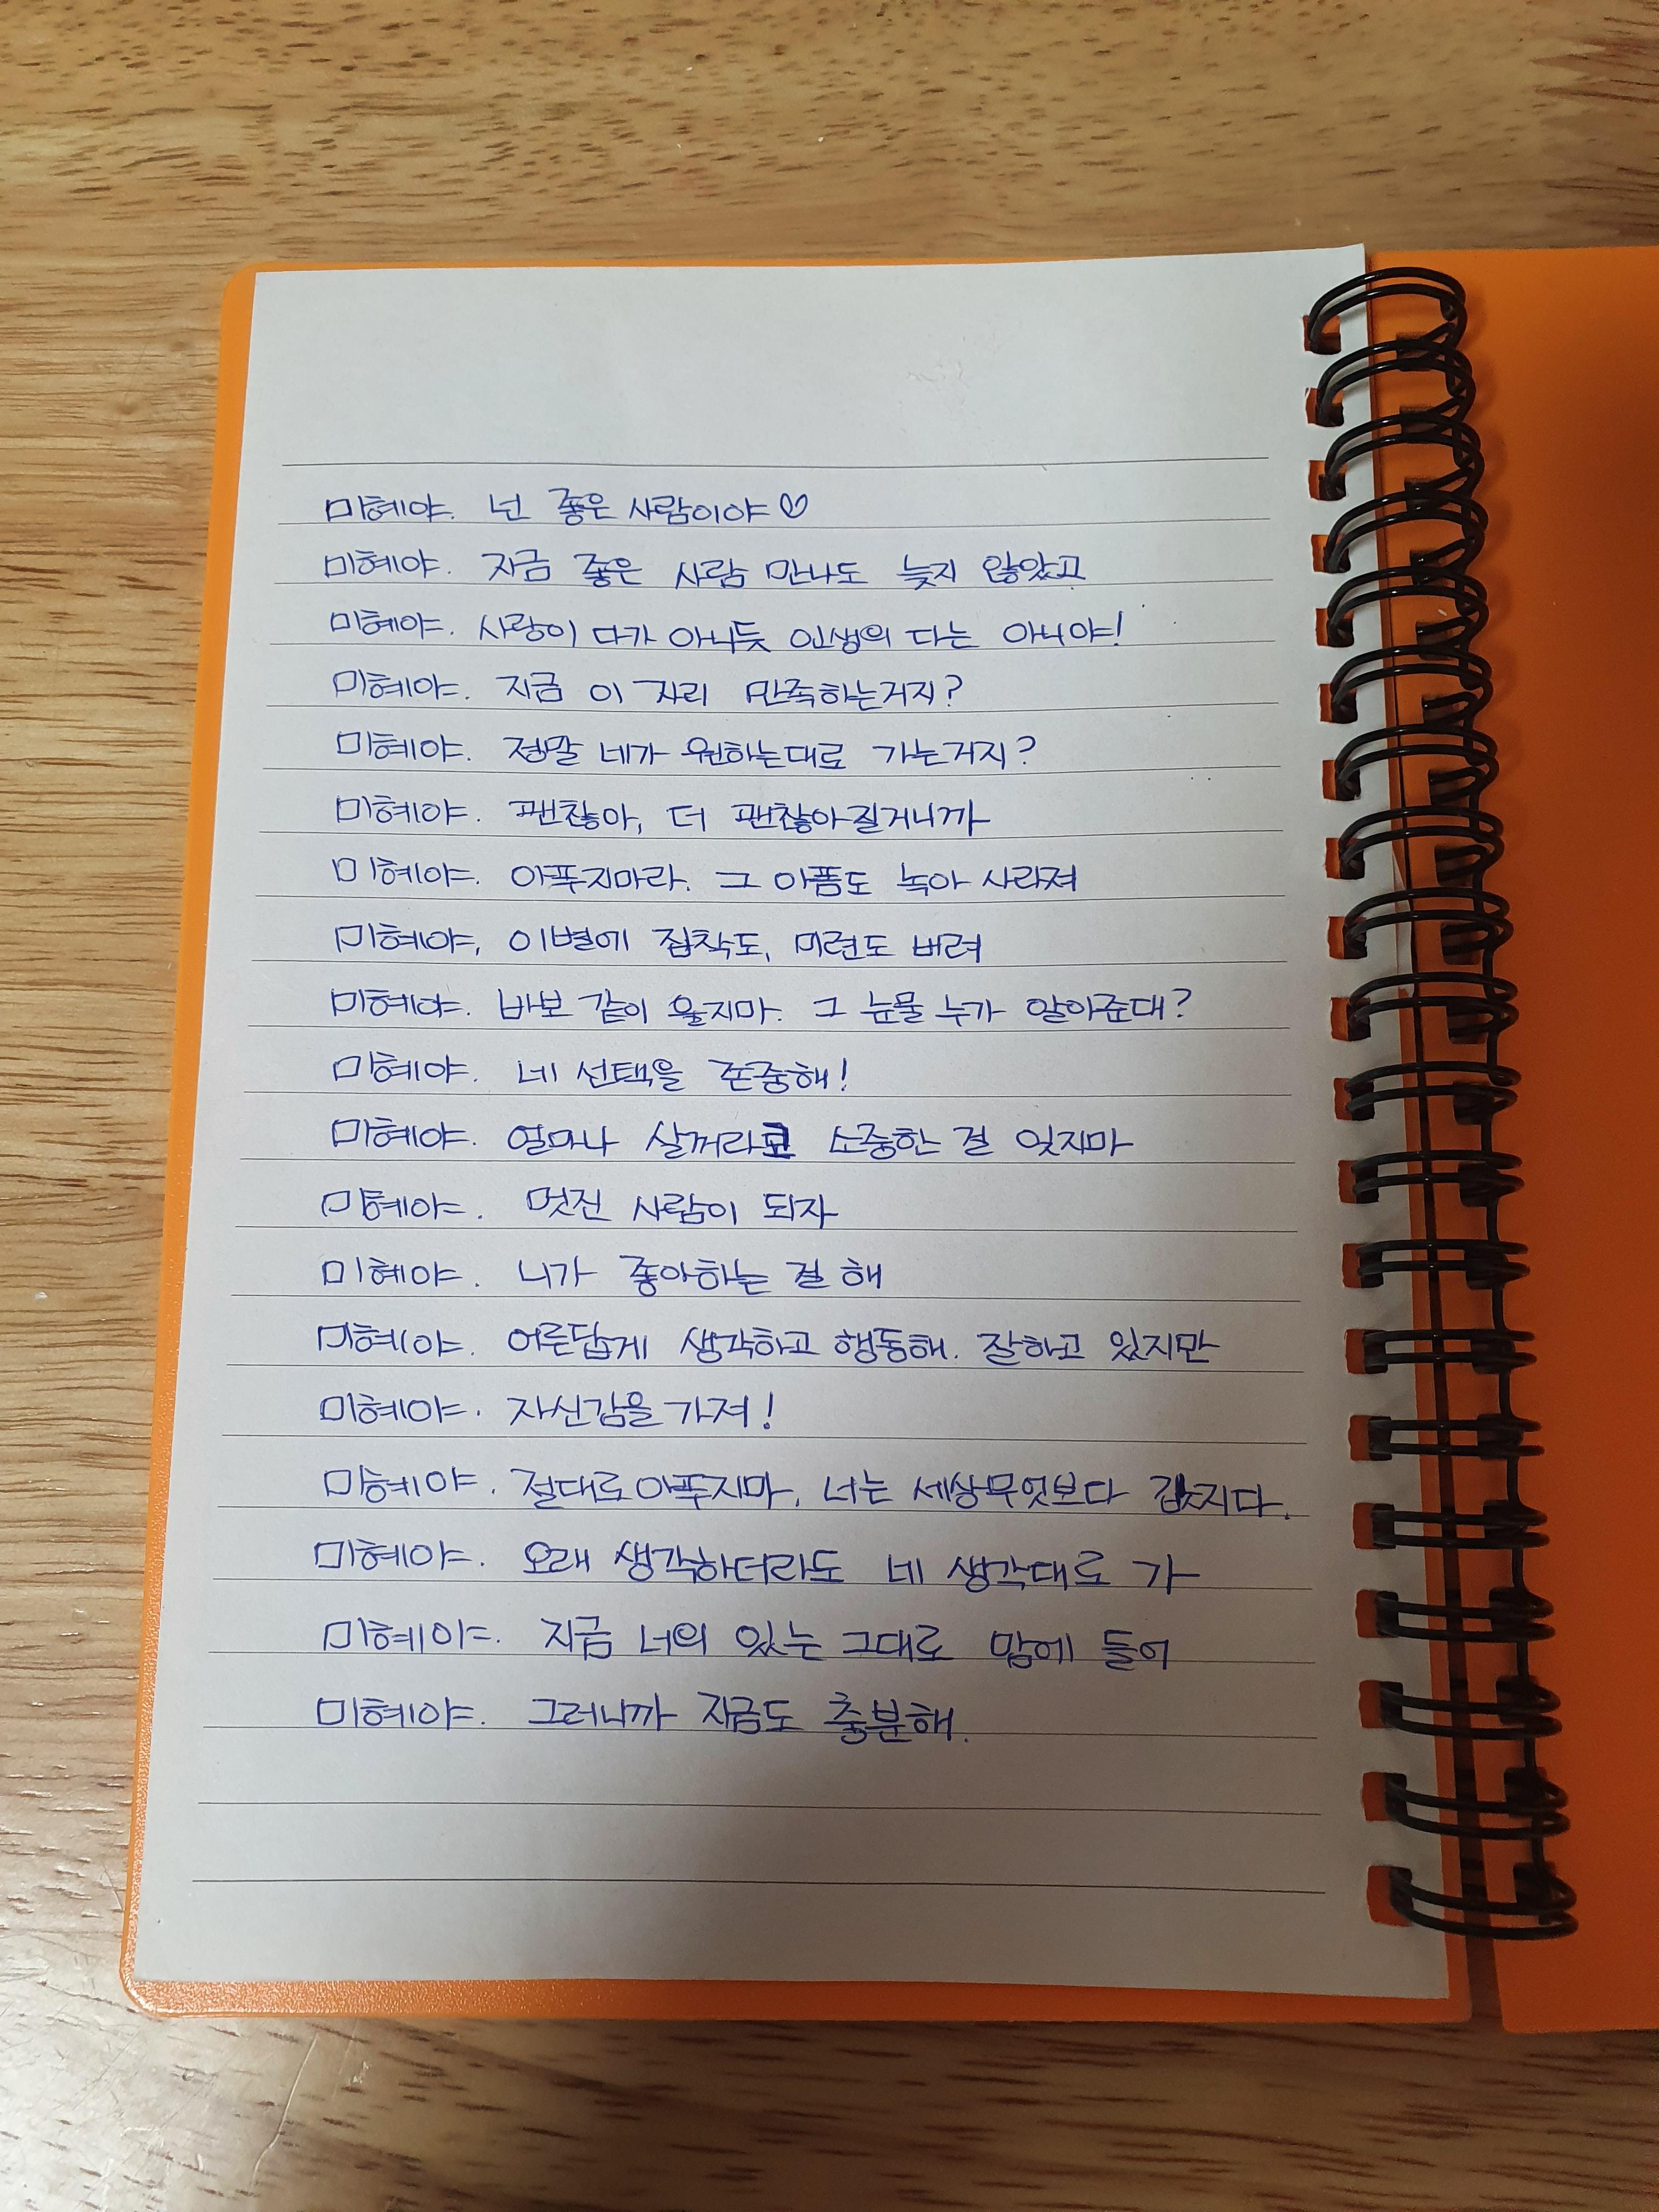 미혜야. 넌 좋은 사람이야♡
미혜야. 지금 좋은 사람 만나도 늦지 않았고
미혜야. 사랑이 다가 아니듯 인생의 다는 아니야!
미혜야. 지금 이 자리 만족하는거지?
미혜야. 정말 네가 원하는대로 가는거지?
미혜야. 괜찮아, 더 괜찮아질거니까
미혜야. 아푸지마라. 그 아픔도 녹아 사라져
미혜야, 이별에 집착도, 미련도 버려
미혜야. 바보 같이 울지마. 그 눈물 누가 알아준대?
미혜야. 네 선택을 존중해!
미혜야. 얼마나 살꺼라고 소중한 걸 잊지마
미혜야. 멋진 사람이 되자
미혜야. 니가 좋아하는 걸 해
미혜야. 어른답게 생각하고 행동해. 잘하고 있지만
미혜야. 자신감을 가져!
미혜야. 절대로 아푸지마, 너는 세상무엇보다 값지다.
미혜야. 오래 생각하더라도 네 생각대로 가
미혜야. 지금 너의 있는 그대로 맘에 들어
미혜야. 그러니까 지금도 충분해.